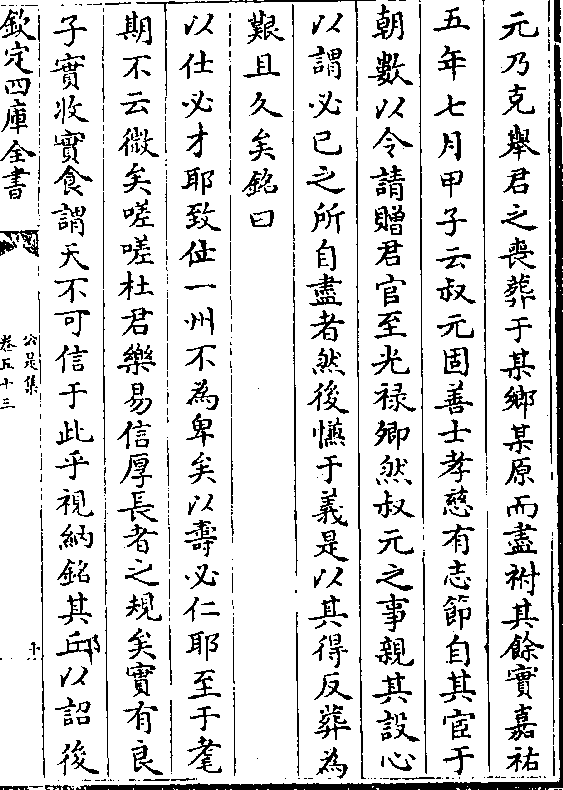 元乃克舉君之喪葬于某鄉某原而盡祔其餘實嘉祐
五年七月甲子云叔元固善士孝慈有志節自其宦于
朝數以令請贈君官至光禄卿然叔元之事親其設心
以謂必已之所自盡者然後慊于義是以其得反葬為
艱且久矣銘曰
以仕必才耶致位一州不為卑矣以壽必仁耶至于耄
期不云微矣嗟嗟杜君樂易信厚長者之規矣實有良
子實收實食謂天不可信于此乎視納銘其丘以詔後
欽定四庫全書
公是集
卷五十三
十